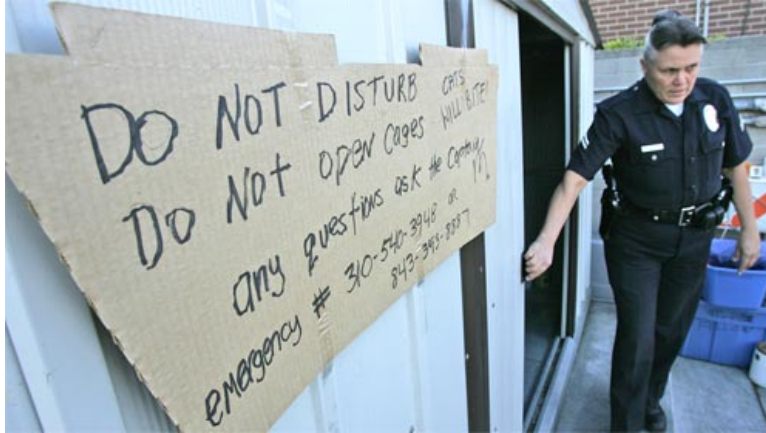 DO NOT DISTURB
CATS
WILL BITE!
Do Not open Cages
any questions ask the Captain
emergency # 310-540-3948 or
843-393-8887